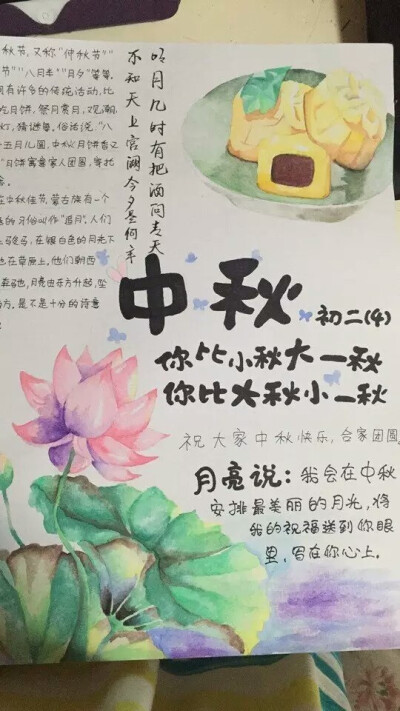 秋节,又称"仲秋节"
节""八月半""月夕"等等。
有许多的传统活动,比
吃月饼,祭月赏月,观潮,
灯,猜谜等。俗话说,"八
十五月儿圆,中秋月饼香又
"月饼寓意家人团圆,寄托
念。
在中秋佳节,蒙古族有一个
的习俗叫作"追月"。人们
上骏马,在银白色的月光下
在草原上。他们朝西
奔驰,月亮由东方升起,坠
方,是不是十分的诗意
明月几时有把酒问青天
不知天上宫阙今夕是何年
中秋
初二(4)
你比小秋大一秋
你比大秋小一秋
祝大家中秋快乐,合家团圆
月亮说:我会在中秋
安排最美丽的月光,将
我的祝福送到你眼
里,写在你心上。